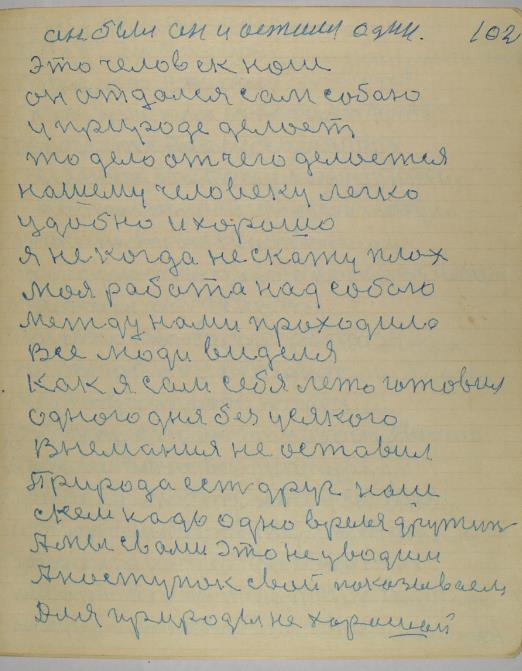 он был он и остался один. 102
Это человек наш
он отдался сам собою
у природе делает
то дело отчего делается
нашему человеку легко
удобно и хорошо
я не когда не скажу плох
Моя работа над собою
между нами проходило
Все люди виделя
Как я сам себя лето готовил
одного дня без усякого
Внемания не оставил
Природа есть друг наш
скем кадь одно время дружит
А мы свами это не уводим
А поступок свой показываем
Для природы не хороший